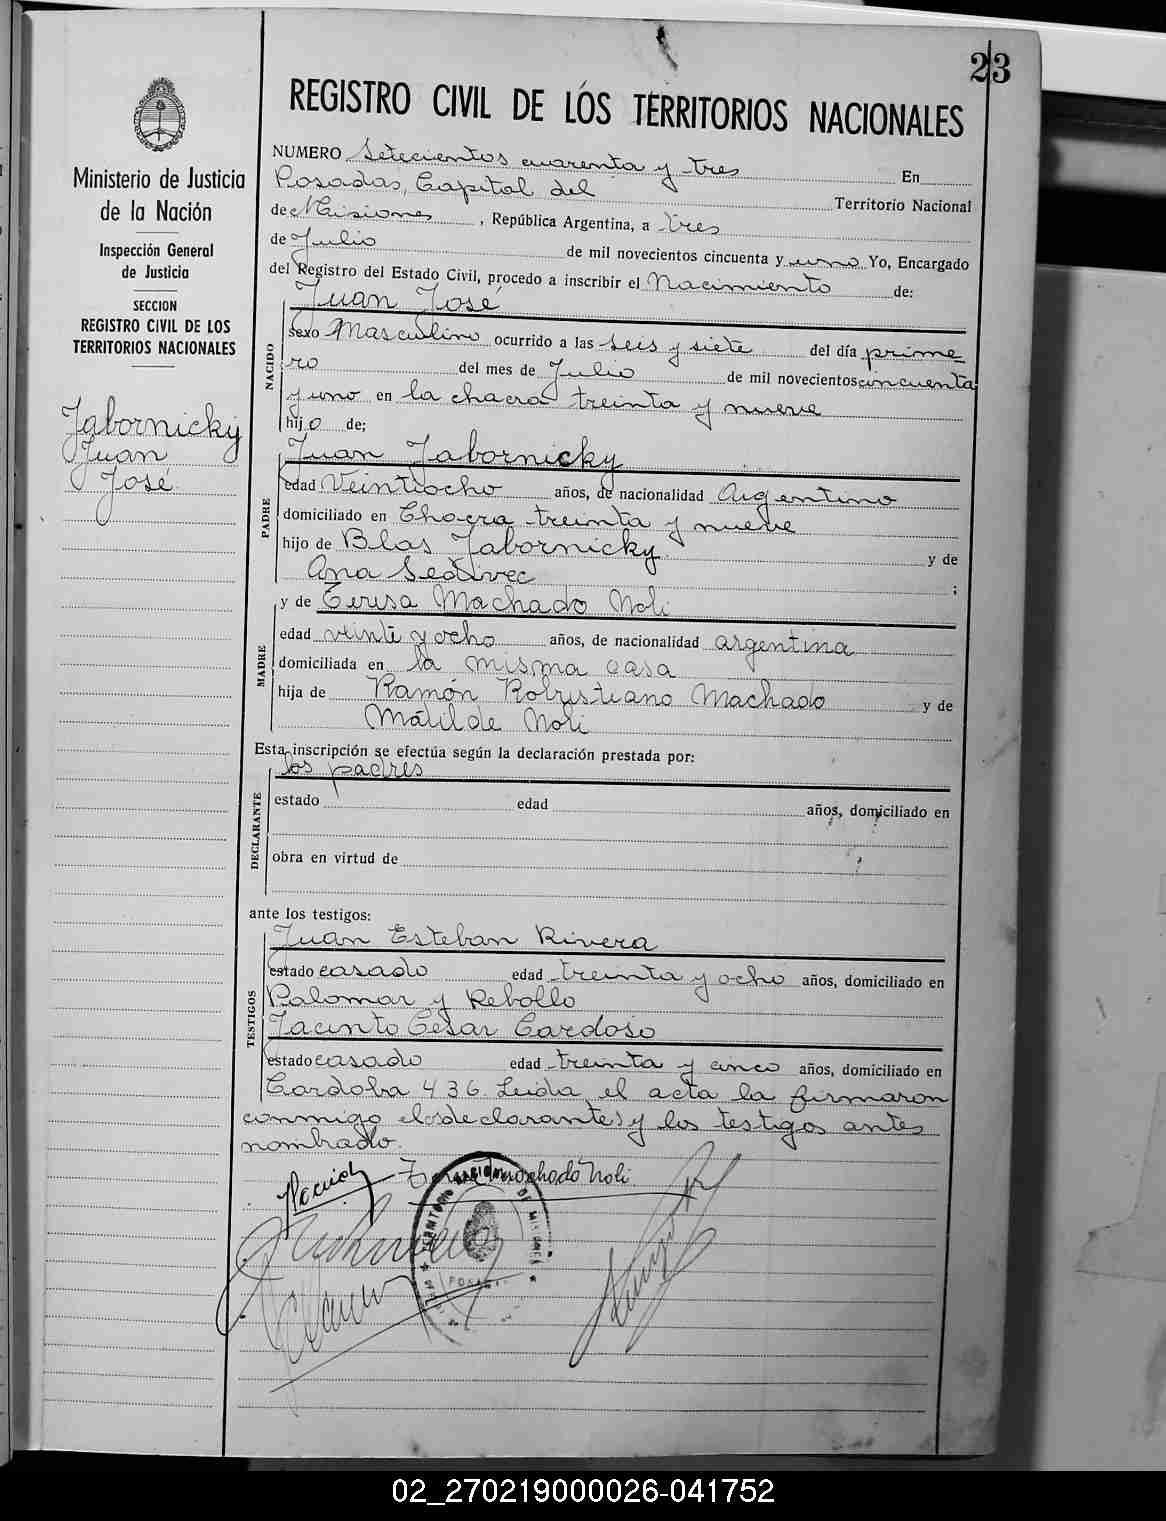 23
REGISTRO CIVIL DE LOS TERRITORIOS NACIONALES
Ministerio de Justicia
de la Nación
Inspección General
de Justicia
SECCION
REGISTRO CIVIL DE LOS
TERRITORIOS NACIONALES
Jabornicky
Juan
José
NUMERO Setecientos cuarenta y tres En
Posadas, Capital del Territorio Nacional
de Misiones, República Argentina, a tres
de Julio de mil novecientos cincuenta y uno Yo, Encargado
del Registro del Estado Civil, procedo a inscribir el Nacimiento de:
Juan José
NACIDO
sexo Masculino ocurrido a las seis y siete del día prime
ro del mes de Julio de mil novecientos cincuenta
y uno en la chacra treinta y nueve
hijo de;
Juan Jabornicky
PADRE
edad Veintiocho años, de nacionalidad Argentino
domiciliado en Chacra treinta y nueve
hijo de Blas Jabornicky y de
Ana Sedivec ;
y de Teresa Machado Noli
MADRE
edad veinte y ocho años, de nacionalidad argentina
domiciliada en la misma casa
hija de Ramón Robustiano Machado y de
Matilde Noli
Esta inscripción se efectúa según la declaración prestada por:
los padres
DECLARANTE
estado edad años, domiciliado en
obra en virtud de
ante los testigos:
Juan Esteban Rivera
TESTIGOS
estado casado edad treinta y ocho años, domiciliado en
Palomar y Rebollo
Jacinto Cesar Cardoso
estado casado edad treinta y cinco años, domiciliado en
Cordoba 436. Leida el acta la firmaron
conmigo los declarantes y los testigos antes
nombrado.
Machado Noli
02_270219000026-041752